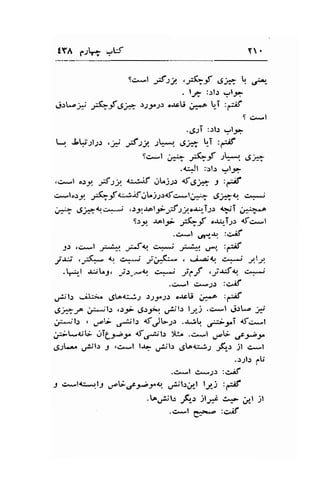 ۲۱۰ کتاب چهارم ۴۳۸
یعنی با چیزی کوچکتر، بزرگتر است؟
جواب داد: چرا .
گفتم: آیا همین قاعده درمورد چیزی کوچکتر نیز صادق
است ؟
جواب داد: آری.
گفتم: آیا چیزی بسیار بزرگتر نیز، درارتباط با
چیزی بسیار کوچکتر چنین است؟
جواب داد: البته.
گفتم: و چیزی که درزمان گذشته بزرگتر بوده است،
نسبت به چیزی چنین است که درزمان گذشته کوچکتر بوده است
همچنین آنچه درآینده بزرگتر خواهد بود، نسبت به چیزی چنین
است که درآینده کوچکتر خواهد بود؟
گفت: بدیهی است.
گفتم: پس بیشتر نسبت به کمتر بیشتر است، دو
برابر نسبت به نصف ، سنگین تر نسبت به سبکتر، تندتر
نسبت به کندتر، گرم تر نسبت به سردتر ، ومانند اینها.
گفت: درست است.
گفتم: همین قاعده درمورد رشته های مختلف دانش
نیز صادق است. زیرا دانش بخودی خود، دانستن هرچیزی
است که آموختنی باشد. درحالی که دانشی خاص ، دانستن
موضوعی خاص است. مثلا دانشی که موضوع آن خانه ساختن
است از دیگر رشته های دانش جدا است، و دانش معماری
نام دارد.
گفت: درست است.
گفتم: زیرا این دانش به موضوعی خاص وابسته است و
از این حیث غیراز دیگر دانش ها.
گفت: صحیح است.